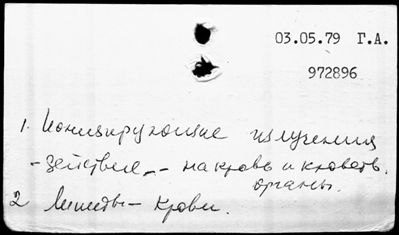 03.05.79 Г.А.
972896
1. Ионизирующие излучения
- действие - на кровь и кроветв.
органы.
2 Липиды - крови.